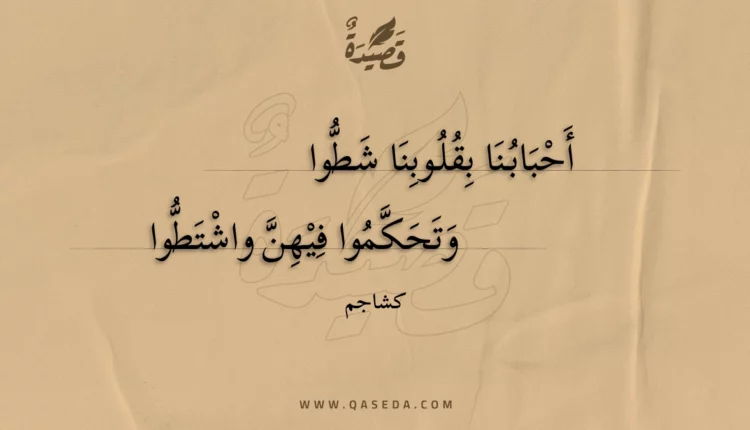 قَصِيْدَةٌ
أَحْبَابُنَا بِقُلُوبِنَا شَطُّوا
وَتَحَكَّمُوا فِيْهِنَّ واشْتَطُّوا
كشاجم
WWW.QASEDA.COM